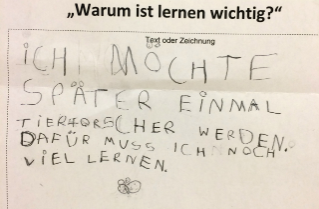 „Warum ist lernen wichtig?“
Text oder Zeichnung
ICH MÖCHTE
SPÄTER EINMAL
TIERFORSCHER WERDEN.
DAFÜR MUSS ICH NOCH
VIEL LERNEN.